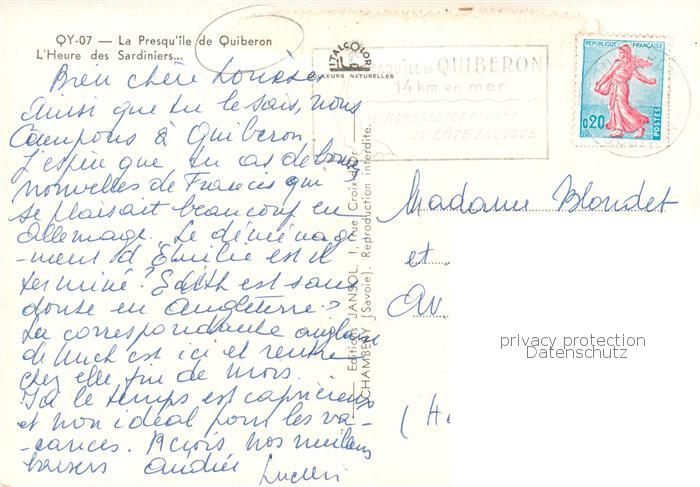 QY-07 — La Presqu'île de Quiberon
L'Heure des Sardiniers...
Bien chère Louise
Ainsi que tu le sais, nous
campons à Quiberon.
J'espère que tu as de bonnes
nouvelles de Francis qui
se plaisait beaucoup en
Allemagne. Le déménage
-ment d'Emilie est-il
terminé? Edith est sans
doute en Angleterre?
La correspondante anglaise
de est ici et rentre
chez elle fin de mois.
Ici le temps est capricieux
et non idéal pour les va-
cances. Reçois nos meilleurs
baisers Andrée
Lucien
ITALCOLOR
COULEURS NATURELLES
Editions JANSOL, 1, rue Croix
CHAMBERY (Savoie). Reproduction interdite.
PRESQU'ILE DE QUIBERON
14 km en mer
SES NOMBREUSES PLAGES
SA CÔTE SAUVAGE
REPUBLIQUE FRANÇAISE
0,20
POSTES
Madame Blondet
et
Av
(H
privacy protection
Datenschutz